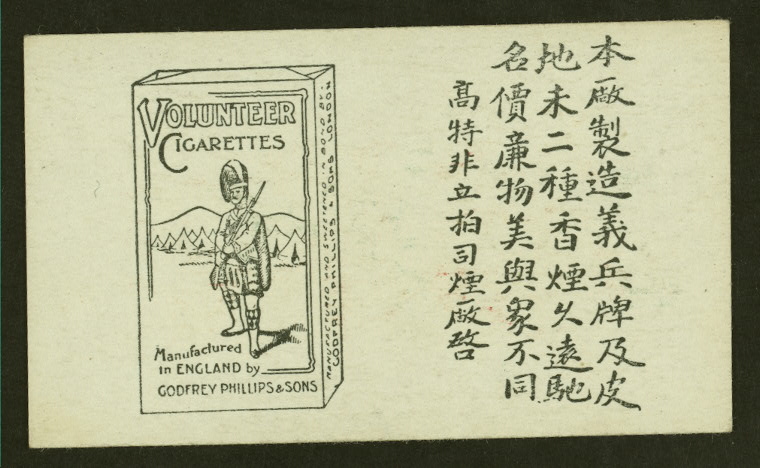 VOLUNTEER
CIGARETTES
Manufactured
in ENGLAND by
GODFREY PHILLIPS & SONS
MANUFACTURED AND SWEETENED IN BOND BY
GODFREY PHILLIPS & SONS LONDON
本厰製造義兵牌及皮
地未二種香煙久遠馳
名價亷物美與衆不同
高特非立拍司煙厰啓